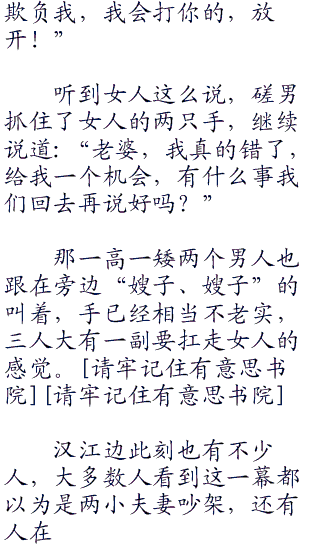 欺负我，我会打你的，放
开！”
听到女人这么说，磋男
抓住了女人的两只手，继续
说道：“老婆，我真的错了，
给我一个机会，有什么事我
们回去再说好吗？”
那一高一矮两个男人也
跟在旁边“嫂子、嫂子”的
叫着，手已经相当不老实，
三人大有一副要扛走女人的
感觉。[请牢记住有意思书
院][请牢记住有意思书院]
汉江边此刻也有不少
人，大多数人看到这一幕都
以为是两小夫妻吵架，还有
人在